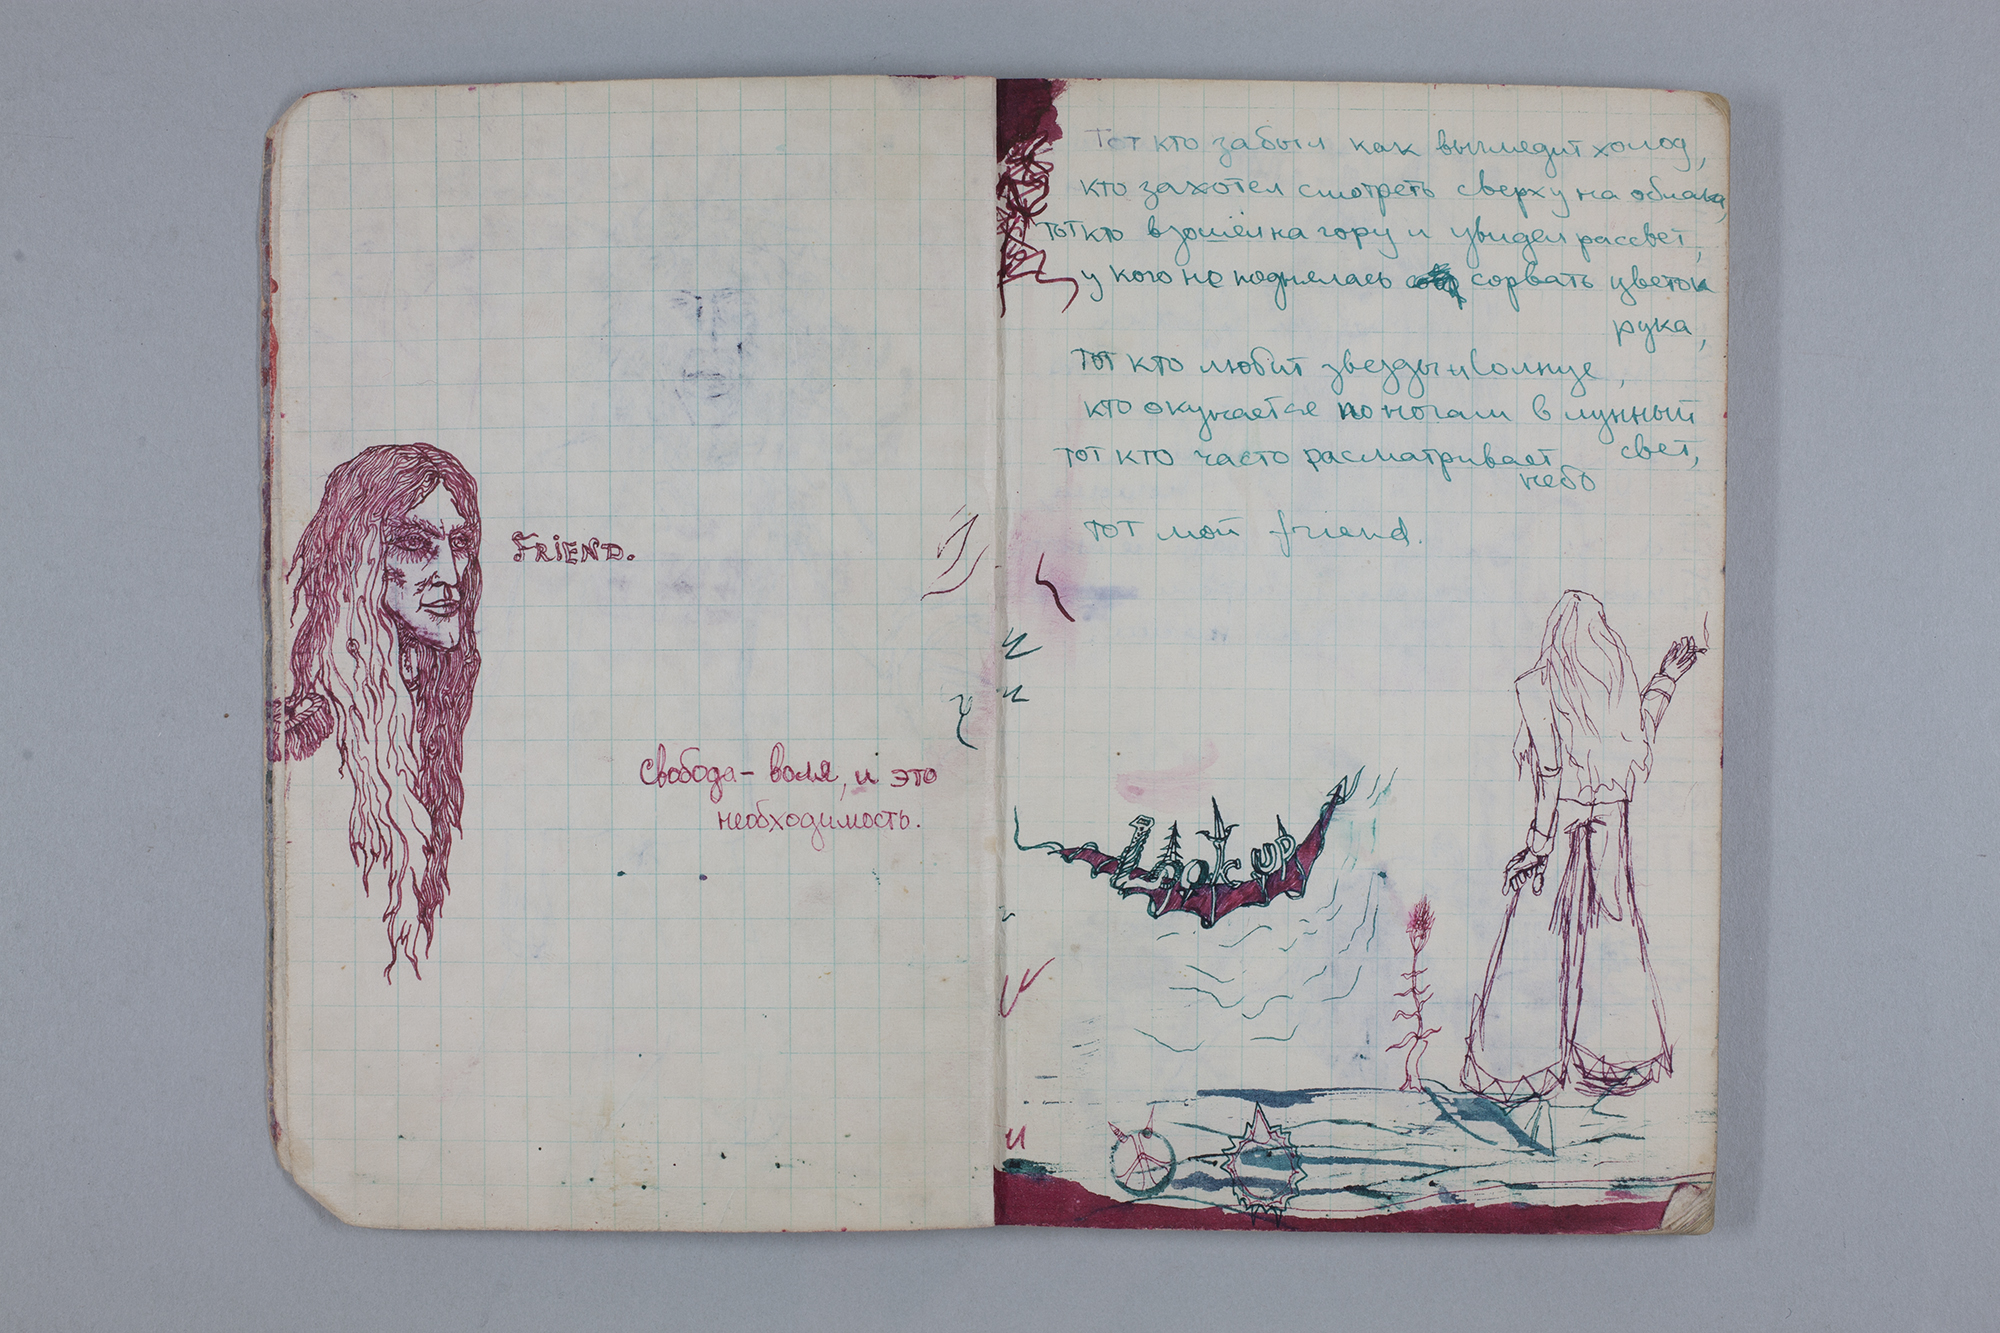 FRiEND.
свобода – воля, и это
необходимость.
Тот кто забыл как выглядит холод,
кто захотел смотреть сверху на облака,
тот кто взошёл на гору и увидел рассвет,
у кого не поднялась сорвать цветок
рука,
тот кто любит звезды и солнце,
кто окунается по ногам в лунный
свет,
тот кто часто расматривает
небо
тот мой friend.
Look up